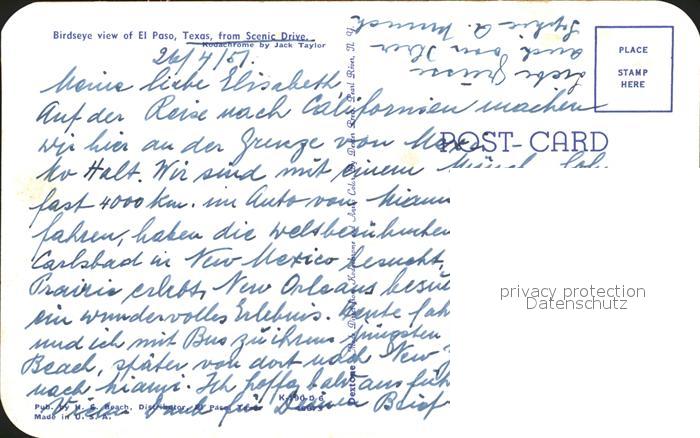 Birdseye view of El Paso, Texas, from Scenic Drive.
Kodachrome by Jack Taylor
PLACE
STAMP
HERE
POST-CARD
26/4/51.
Meine liebe Elisabeth,
Auf der Reise nach Californien machen
wir hier an der Grenze von Mexi-
ko Halt. Wir sind mit einem
fast 4000 km. im Auto von Miami
fahren, haben die weltberühmten
Carlsbad in New Mexico besucht,
Prairie erlebt, New Orleans
ein wundervolles Erlebnis. Heute
und ich mit Bus zu ihrem jüngsten
Beach, später von dort nach New
nach Miami. Ich hoffe bald
Vielen Dank für Deinen Brief
Liebe Grüsse
auch von Ihrer
Sophie A.
Pub. by H. S. Beach, Distributor, El Paso, Tex.
Made in U. S. A.
privacy protection
Datenschutz